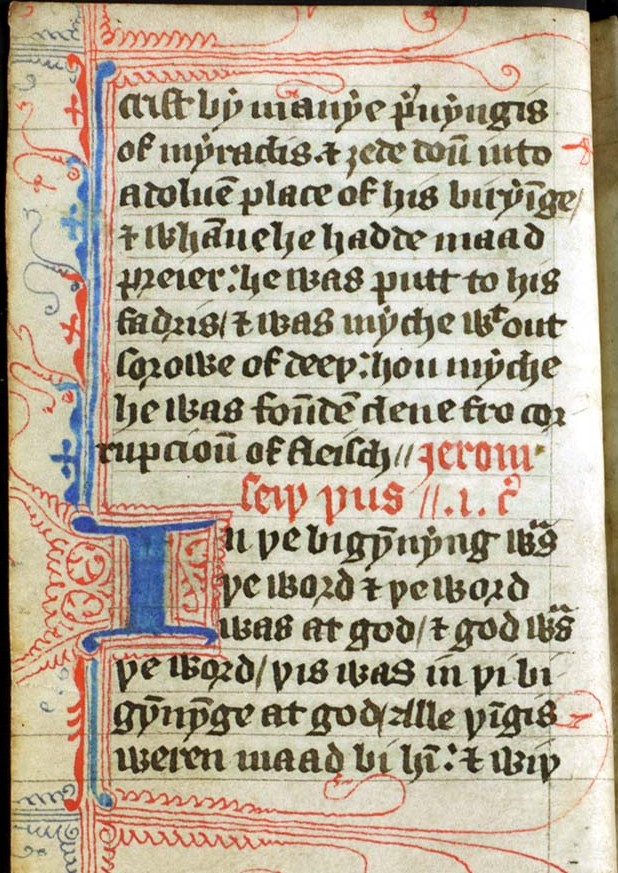 crist bẏ manẏe p̄uẏngis
of mẏraclis. ⁊ ȝede doū into
a doluē place of his biriẏ̄ge/
⁊ whāne he hadde maad
preier: he was putt to his
fadris/ ⁊ was mẏche wᵗ out
sorowe of deeþ: hou mẏche
he was foūdē clene fro cor
rupcioū of fleisch// Jerom
seiþ þus //.i. c̄
In þe bigẏ̄nẏng wᵃs
þe word ⁊ þe word
was at god/ ⁊ god wᵃs
þe word/ þis was in þi bi
gẏ̄nẏ̄ge at god/ Alle þīgis
weren maad bi hī: ⁊ wiþ